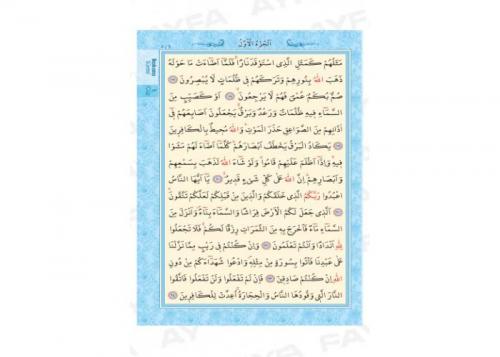 اَلْجُزْءُ الْاَوَّلُ
مَثَلُهُمْ كَمَثَلِ الَّذِى اسْتَوْقَدَ نَارًاۚ فَلَمَّٓا اَضَٓاءَتْ مَا حَوْلَهُ
ذَهَبَ اللّٰهُ بِنُورِهِمْ وَتَرَكَهُمْ فٖى ظُلُمَاتٍ لَا يُبْصِرُونَ
صُمٌّ بُكْمٌ عُمْىٌ فَهُمْ لَا يَرْجِعُونَۙ اَوْ كَصَيِّبٍ مِنَ
السَّمَٓاءِ فٖيهِ ظُلُمَاتٌ وَرَعْدٌ وَبَرْقٌۚ يَجْعَلُونَ اَصَابِعَهُمْ فٖٓى
اٰذَانِهِمْ مِنَ الصَّوَاعِقِ حَذَرَ الْمَوْتِؕ وَاللّٰهُ مُحٖيطٌ بِالْكَافِرٖينَ
يَكَادُ الْبَرْقُ يَخْطَفُ اَبْصَارَهُمْؕ كُلَّمَٓا اَضَٓاءَ لَهُمْ مَشَوْا
فٖيهِ وَاِذَٓا اَظْلَمَ عَلَيْهِمْ قَامُواؕ وَلَوْ شَٓاءَ اللّٰهُ لَذَهَبَ بِسَمْعِهِمْ
وَاَبْصَارِهِمْؕ اِنَّ اللّٰهَ عَلٰى كُلِّ شَىْءٍ قَدٖيرٌ يَٓا اَيُّهَا النَّاسُ
اعْبُدُوا رَبَّكُمُ الَّذٖى خَلَقَكُمْ وَالَّذٖينَ مِنْ قَبْلِكُمْ لَعَلَّكُمْ تَتَّقُونَۙ
اَلَّذٖى جَعَلَ لَكُمُ الْاَرْضَ فِرَاشًا وَالسَّمَٓاءَ بِنَٓاءًࣕ وَاَنْزَلَ مِنَ
السَّمَٓاءِ مَٓاءً فَاَخْرَجَ بِهٖ مِنَ الثَّمَرَاتِ رِزْقًا لَكُمْۚ فَلَا تَجْعَلُوا
لِلّٰهِ اَنْدَادًا وَاَنْتُمْ تَعْلَمُونَ وَاِنْ كُنْتُمْ فٖى رَيْبٍ مِمَّا نَزَّلْنَا
عَلٰى عَبْدِنَا فَأْتُوا بِسُورَةٍ مِنْ مِثْلِهٖࣕ وَادْعُوا شُهَدَٓاءَكُمْ مِنْ دُونِ
اللّٰهِ اِنْ كُنْتُمْ صَادِقٖينَ فَاِنْ لَمْ تَفْعَلُوا وَلَنْ تَفْعَلُوا فَاتَّقُوا
النَّارَ الَّتٖى وَقُودُهَا النَّاسُ وَالْحِجَارَةُۚ اُعِدَّتْ لِلْكَافِرٖينَ